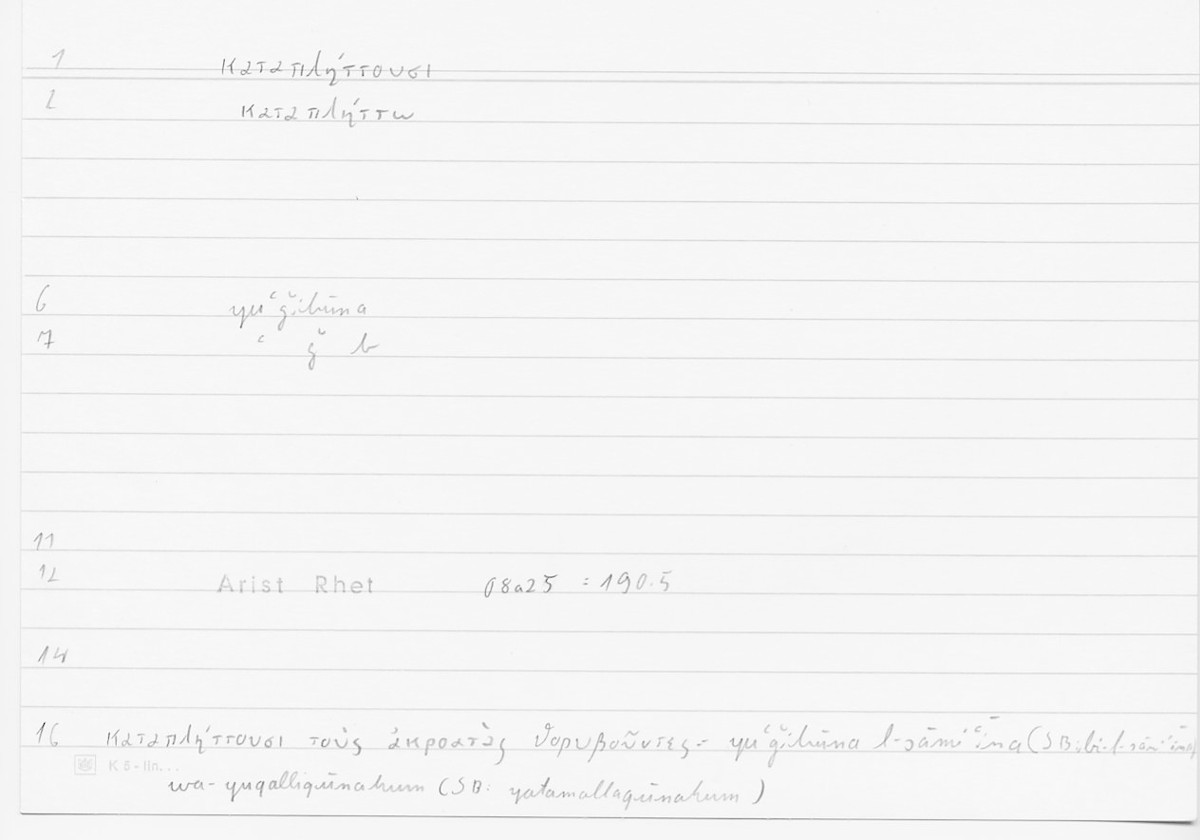 1 καταπλήττουσι
2 καταπλήττω
6 yuʿǧibūna
7 ʿ ǧ b
11
12 Arist Rhet 08a25 = 190.5
14
16 καταπλήττουσι τοὺς ἀκροατὰς θορυβοῦντες = yuʿǧibūna l-sāmiʿīna (SB: bi-l-sāmiʿīna)
K 5 - lin...
wa-yuqalliqūnahum (SB: yatamallaqūnahum)